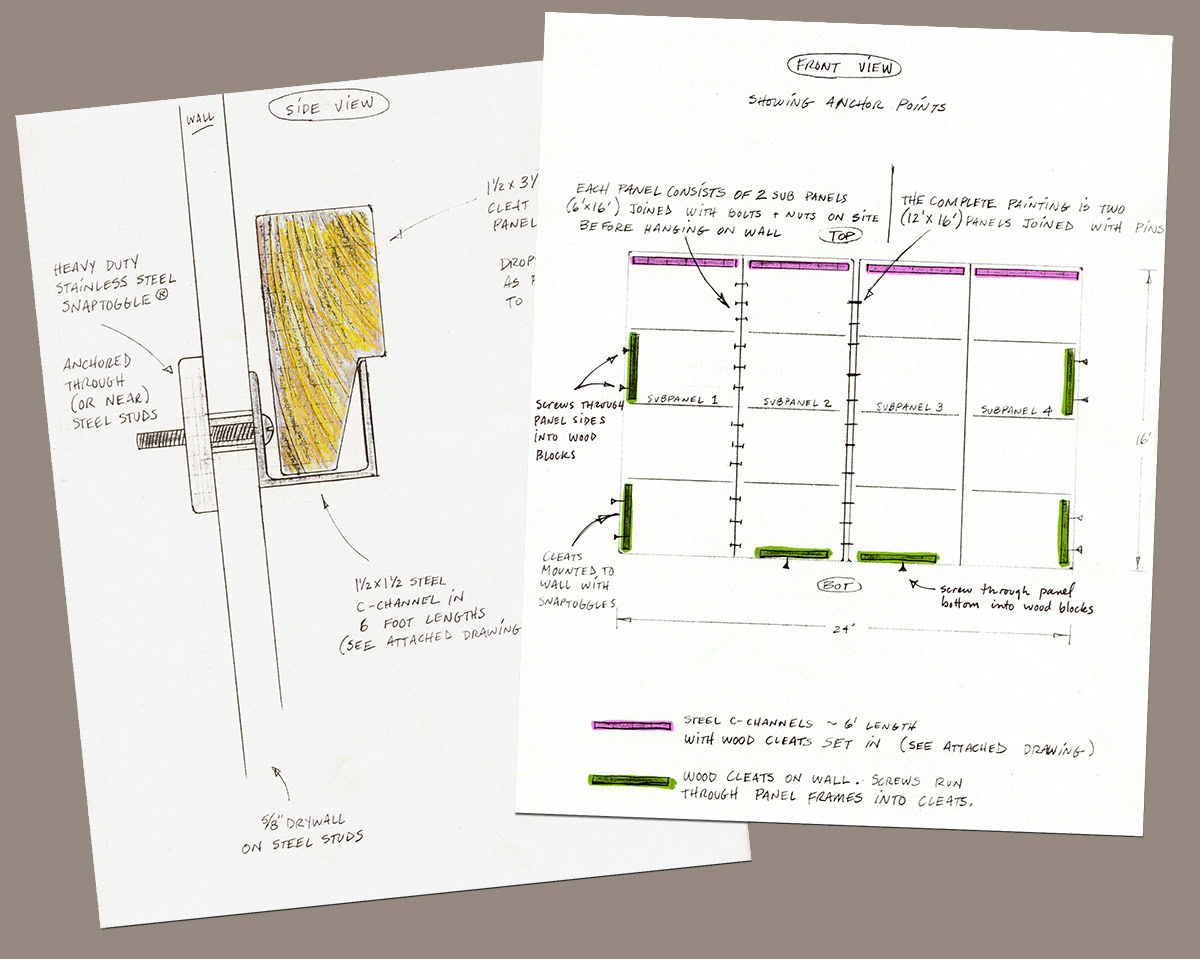 SIDE VIEW
WALL
1½ x 3½
CLEAT
PANEL
DROPS
AS
TO
HEAVY DUTY
STAINLESS STEEL
SNAPTOGGLE ®
ANCHORED
THROUGH
(OR NEAR)
STEEL STUDS
1½ x 1½ STEEL
C-CHANNEL IN
6 FOOT LENGTHS
(SEE ATTACHED DRAWING
5/8" DRYWALL
ON STEEL STUDS
FRONT VIEW
SHOWING ANCHOR POINTS
EACH PANEL CONSISTS OF 2 SUB PANELS
(6'x16') JOINED WITH BOLTS + NUTS ON SITE
BEFORE HANGING ON WALL
THE COMPLETE PAINTING IS TWO
(12'x16') PANELS JOINED WITH PINS
TOP
SUBPANEL 1
SUBPANEL 2
SUBPANEL 3
SUBPANEL 4
SCREWS THROUGH
PANEL SIDES
INTO WOOD
BLOCKS
16'
CLEATS
MOUNTED TO
WALL WITH
SNAPTOGGLES
BOT
screw through panel
bottom into wood blocks
24'
STEEL C-CHANNELS ~ 6' LENGTH
WITH WOOD CLEATS SET IN (SEE ATTACHED DRAWING)
WOOD CLEATS ON WALL. SCREWS RUN
THROUGH PANEL FRAMES INTO CLEATS.